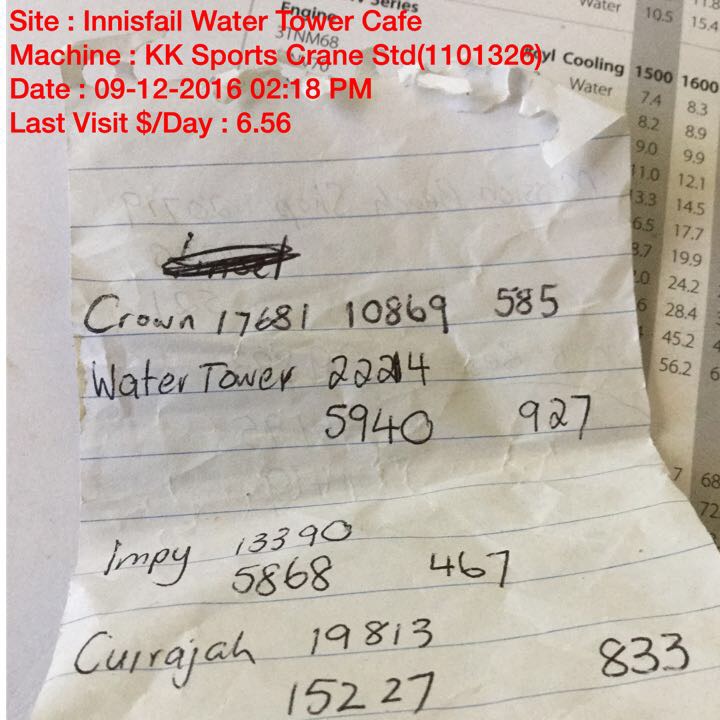 Site : Innisfail Water Tower Cafe
Machine : KK Sports Crane Std(1101326)
Date : 09-12-2016 02:18 PM
Last Visit $/Day : 6.56
Series
Engine
3TNM68
Water 10.5 15.4
Cooling 1500 1600
Water 7.4 8.3
8.2 8.9
9.0 9.9
11.0 12.1
13.3 14.5
6.5 17.7
8.7 19.9
24.2
28.4
45.2
56.2
Crown 17681 10869 585
Water Tower 22214
5940 927
impy 13390
5868 467
Currajah 19813
15227 833
7 68
72